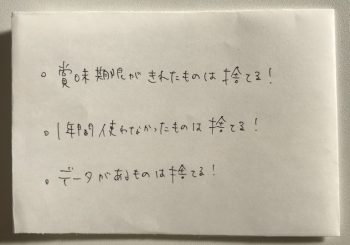 。賞味期限がきれたものは捨てる!
。1年間使わなかったものは捨てる!
。データがあるものは捨てる!